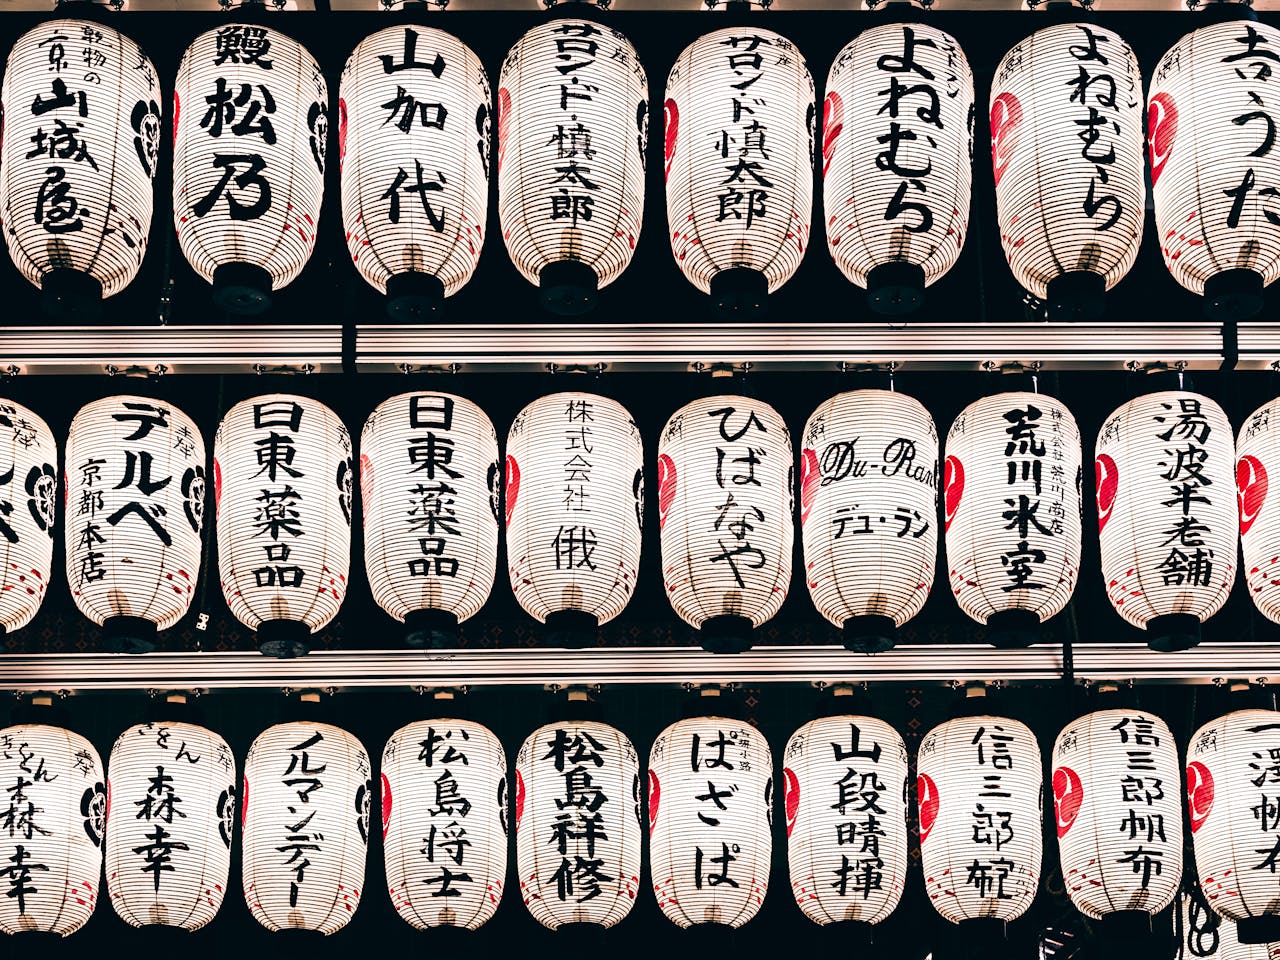 乾物の
京山城屋
鰻松乃
山加代
銀座
サロン・ド・慎太郎
銀座
サロン・ド・慎太郎
よねむら
よねむら
吉うた
デルベ
京都本店
日東薬品
日東薬品
株式会社 俄
ひばなや
Du-Ran
デュ・ラン
株式会社 荒川商店
荒川氷室
湯波半老舗
ぎをん
森幸
ぎをん
森幸
ルマンディー
松島将士
松島祥修
ぱざぱ
山段晴揮
信三郎
信三郎帆布